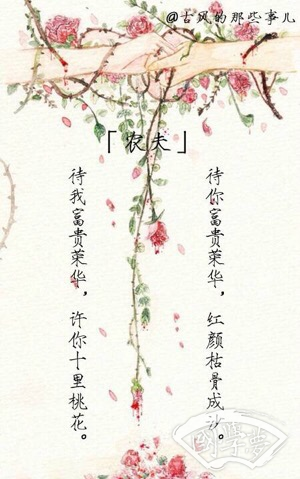 @古风的那些事儿
「农夫」
待我富貴荣华，许你十里桃花。
待你富貴荣华，红颜枯骨成沙。
國學夢